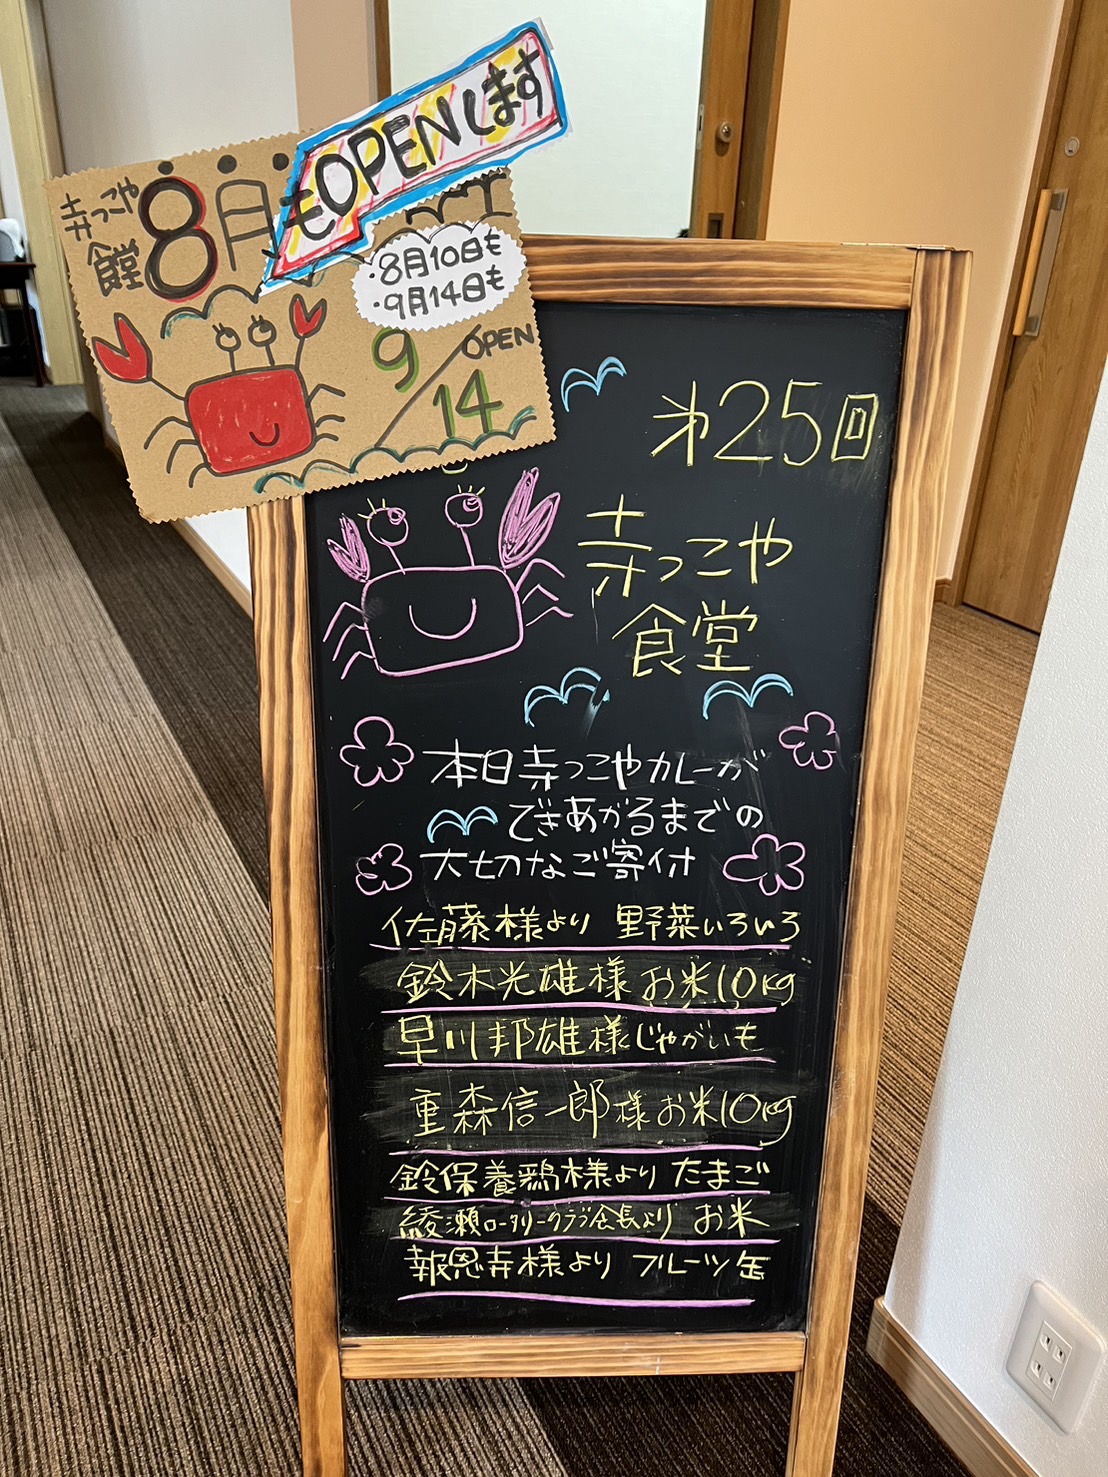 寺っこや
食堂
8月もOPENします
・8月10日も
・9月14日も
9/14
OPEN
第25回
寺っこや
食堂
本日寺っこやカレーが
できあがるまでの
大切なご寄付
佐藤様より 野菜いろいろ
鈴木光雄様 お米10kg
早川邦雄様じゃがいも
重森信一郎様お米10kg
鈴保養鶏様より たまご
綾瀬ロータリークラブ会長より お米
報恩寺様より フルーツ缶